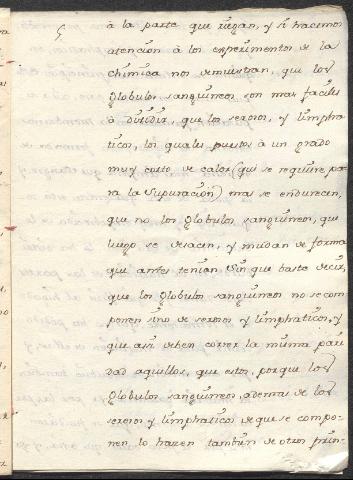 à la parte que riegan, y si hacemos
atencion à los experimentos de la
chimica nos demuestran, que los
Globulos sanguineos son mas faciles
à dividir, que los serosos, y limpha
ticos, los quales puestos à un grado
muy corto de calor (qual se requiere pa
ra la supuracion) mas se endurecen,
que no los Globulos sanguineos, que
luego se desacen, y mudan de forma
que antes tenian sin que baste decir,
que los Globulos sanguineos no se com
ponen sino de serosos y limphaticos, y
que asi deben correr la misma pari
dad aquellos, que estos, porque los
Globulos sanguineos, ademas de los
serosos y limphaticos de que se compo-
nen, lo hacen tambien de otros prin-